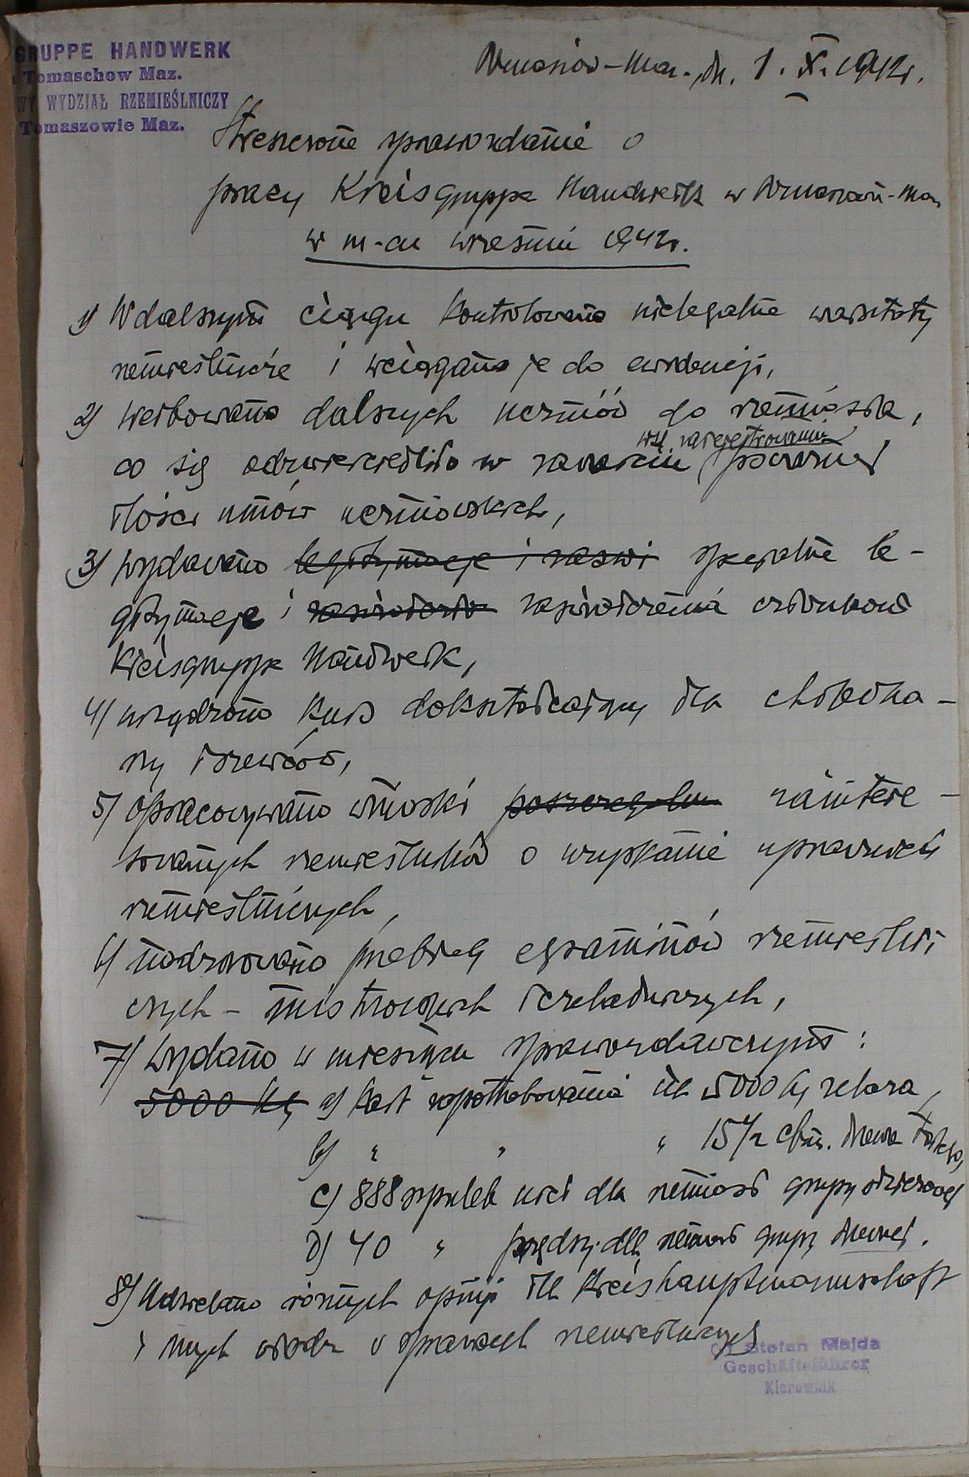 GRUPPE HANDWERK
Tomaschow Maz.
WY WYDZIAŁ RZEMIEŚLNICZY
Tomaszowie Maz.
Tomaszów-Maz. dn. 1. X. 1942r.
Streszczone sprawozdanie o
pracy Kreisgruppe Handwerk w Tomaszowie-Maz.
w m-cu wrześniu 1942r.
1) W dalszym ciągu kontrolowano nielegalne warsztaty
rzemieślnicze i wciągano je do ewidencji,
2) Werbowano dalszych uczniów do rzemiosła,
co się odzwierciedliło w zarejestrowaniu
ilości umów uczniowskich,
3) Wydawano legitymacje i zaświ specjalne le-
gitymacje i zaświadcze zaświadczenia członkom
Kreisgruppe Handwerk,
4) urządzono kurs dokształcający dla cholewka-
rzy i szewców,
5) Opracowywano wnioski poszczególn zaintere-
sowanych rzemieślników o uzyskanie uprawnień
rzemieślniczych,
6) Nadzorowano przebieg egzaminów rzemieślni
czych - mistrzowskich i czeladniczych,
7) Wydano w miesiącu sprawozdawczym:
5000 kg a) kart zapotrzebowania na 5000 kg żelaza,
b) " " " 15 1/2 cbm. drzewa
c) 888 szpulek nici dla rzemiosł grupy odzieżowej
d) 40 " przędzy dla rzemiosł grupy
8) Udzielano różnych opinji dla Kreishauptmannschaft
i innych władz w sprawach rzemieślniczych
Stefan Majda
Geschäftsführer
Kierownik